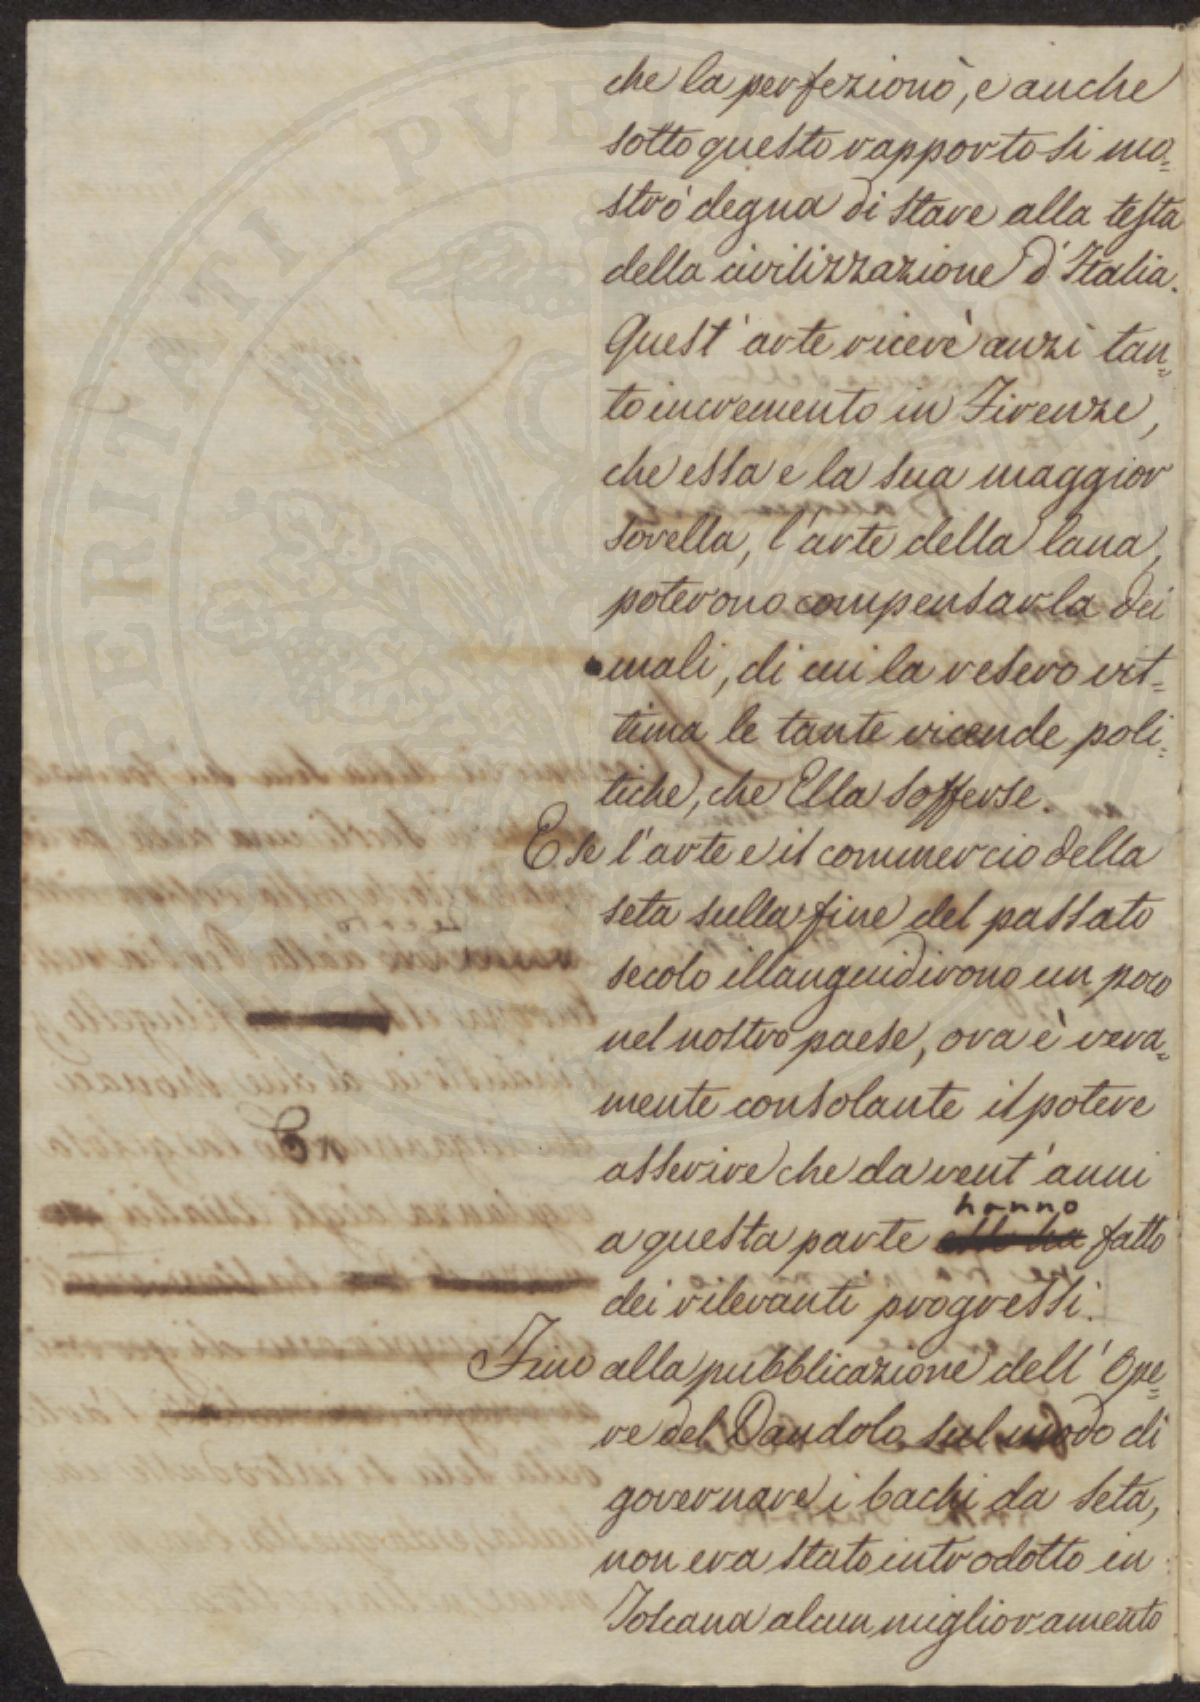 che la perfezionò, e anche
sotto questo rapporto si mo=
strò degna di stare alla testa
della civilizzazione d'Italia.
Quest'arte ricevè anzi tan=
to incremento in Firenze,
che essa e la sua maggior
sorella, l'arte della lana,
poterono compensarla dei
mali, di cui la resero vit=
tima le tante vicende poli=
tiche, che Ella sofferse.
E se l'arte e il commercio della
seta sulla fine del passato
secolo illanguidirono un poco
nel nostro paese, ora è vera=
mente consolante il potere
asserire che da vent'anni
hanno
a questa parte fatto
dei rilevanti progressi.
Fino alla pubblicazione dell'Ope=
re del Dandolo sul modo di
governare i bachi da seta,
non era stato introdotto in
Toscana alcun miglioramento
PERITATI PUBL